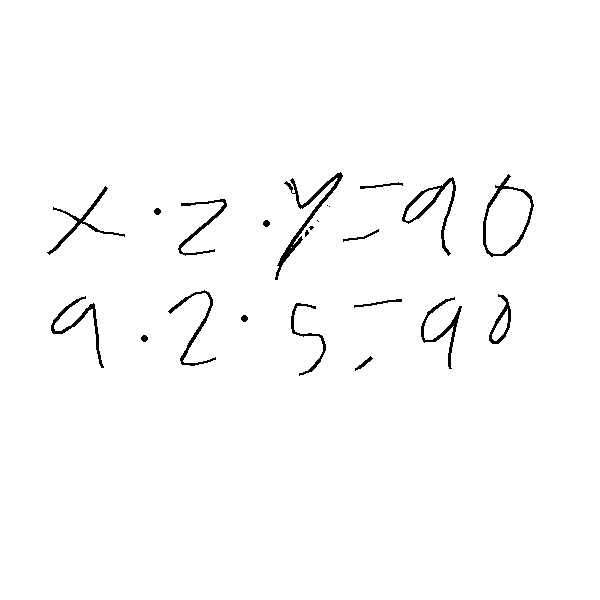 x · z · y = 90
9 · 2 · 5 = 90